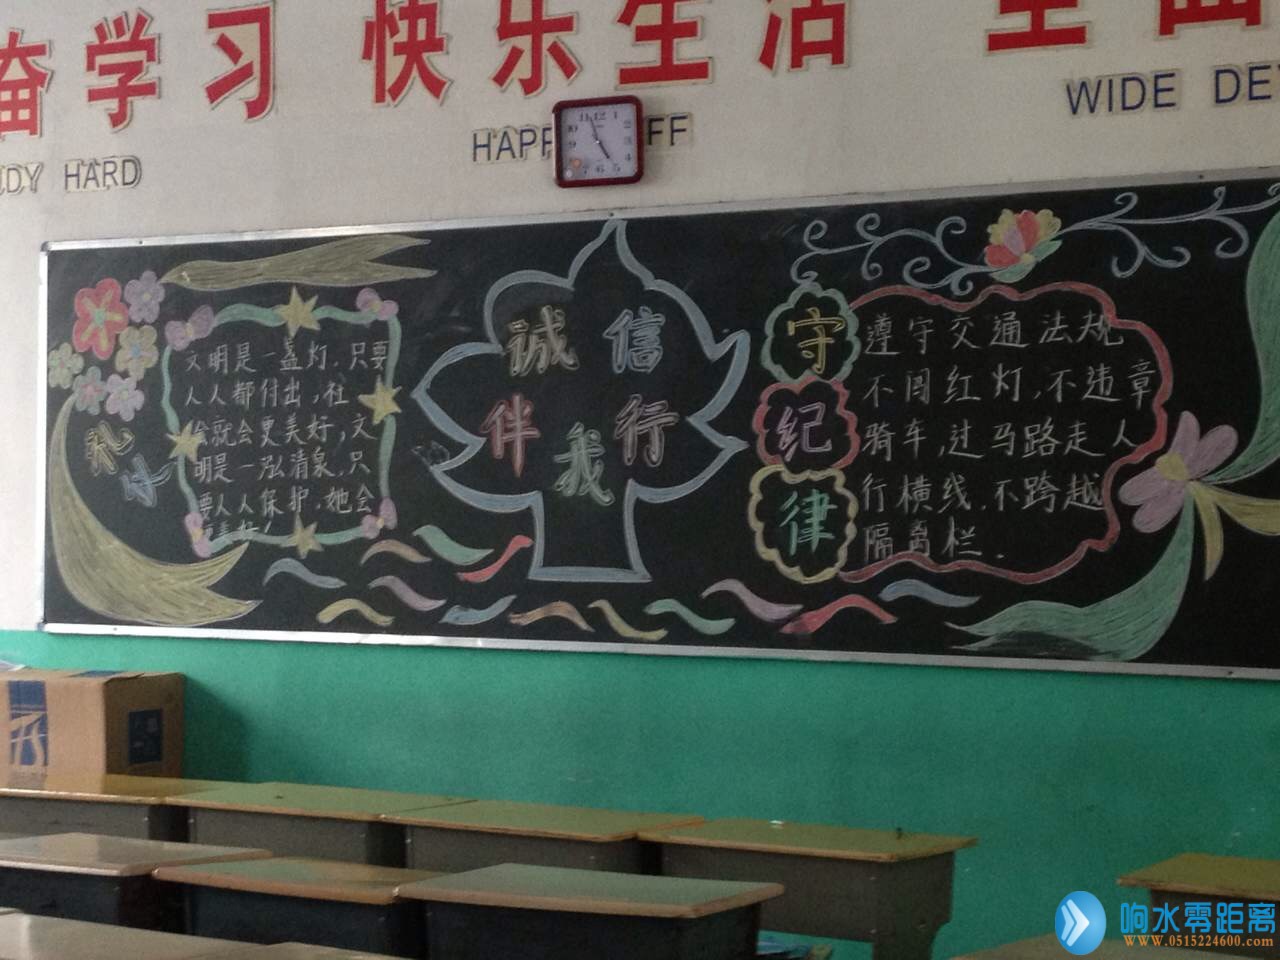 奋学习 快乐生活 全面
UDY HARD
HAPP
FF
WIDE DE
11 12 1
10 2
9 3
4
7 6 5
诚信
伴我行
礼
文明是一盏灯,只要
人人都付出,社
会就会更美好,文
明是一泓清泉,只
要人人保护,她会
守纪律
遵守交通法规
不闯红灯,不违章
骑车,过马路走人
行横线,不跨越
隔离栏.
响水零距离
www.0515224600.com